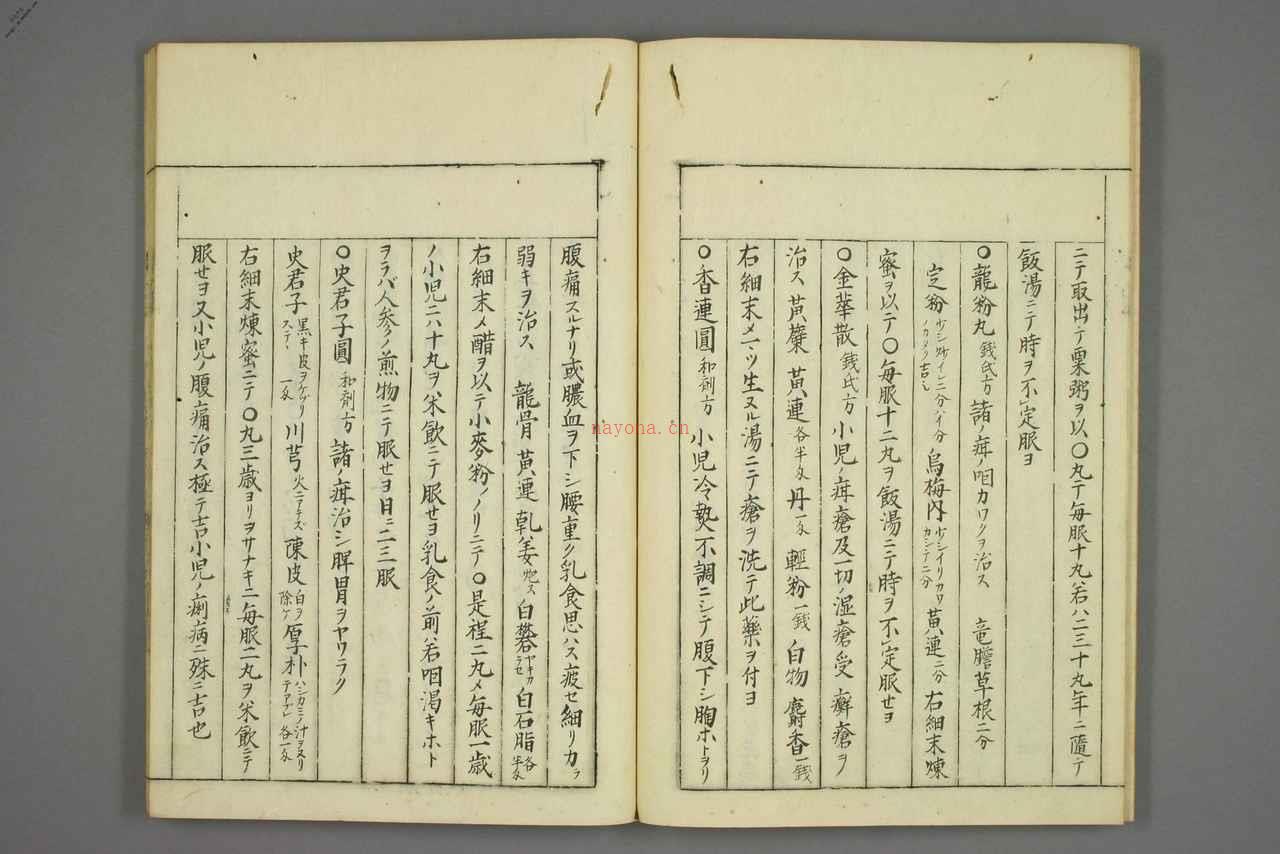 ニテ取出シテ粟粥ヲ以〇丸テ毎服十九若ハ二三十九年ニ隨テ
飯湯ニテ時ヲ不定服ヨ
〇龍粉丸 錢氏方 諸ノ疳ノ咽カワクヲ治ス 竜膽草根二分
定粉 烏梅肉 黃連二分 右細末煉
蜜ヲ以テ〇毎服十二丸ヲ飯湯ニテ時ヲ不定服せヨ
〇金華散 錢氏方 小児ノ疳瘡及一切ノ湿瘡受癬瘡ヲ
治ス 黃蘗 黃連 各半支 丹 一支 輕粉 一錢 白物 麝香 一錢
右細末メ一ツ生ヌル湯ニテ瘡ヲ洗テ此藥ヲ付ヨ
〇香連圓 和劑方 小児冷熱不調ニシテ腹下シ胸ホトヲリ
腹痛スルナリ或膿血ヲ下シ腰重ク乳食思ハス疲せ細リカラ
弱キヲ治ス 龍骨 黃連 乹姜 炮ス 白礬 白石脂 各半支
右細末メ醋ヲ以テ小麥粉ノリニテ〇是程ニ丸メ毎服一歳
ノ小児ニハ十丸ヲ米飲ニテ服せヨ乳食ノ前若咽渇キホト
ヲラバ人参ノ煎物ニテ服せヨ日ニ二三服
〇史君子圓 和劑方 諸ノ疳治シ脾胃ヲヤワラク
史君子 黒キ皮ヲケヅリステヽ 一支 川芎 火ニアテズ 陳皮 白ヲ除ケ 厚朴 ハシカミノ汁ヲヌリテアブレ 各一支
右細末煉蜜ニテ〇丸三歳ヨリヲサナキニ毎服二丸ヲ米飲ニテ
服せヨ又小児ノ腹痛治ス極テ吉小児ノ痢病ニ殊ニ吉也
nayona.cn